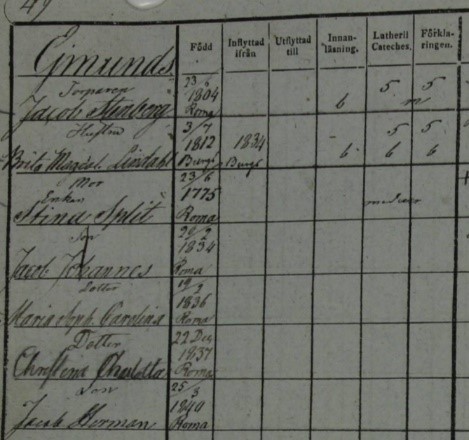 49
Född Inflyttad ifrån Utflyttad till Innan-läsning. Lutheri Cateches. Förkla-ringen.
Gimunds
Torparen 23/6 5 5
Jacob Stenberg 1804 Roma 6
Hustru 3/7 5 5
Brita Magdal. Lindahl 1812 Burgs 1834 Burgs 6 6 6
Mor 23/6
Enkan 1775
Stina Split Roma
Son 29/2
Jacob Johannes 1834 Roma
Dotter 19/3
Maria Soph. Carolina 1836 Roma
Dotter 22 Dec
Christina Charlotta 1837 Roma
Son 25/3
Jacob Herman 1840 Roma